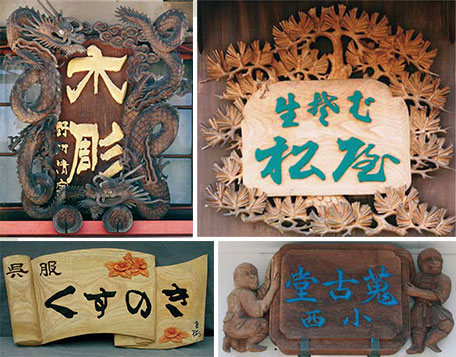 木彫
野村
生そば
松屋
呉服
くすのき
蒐古堂
小西